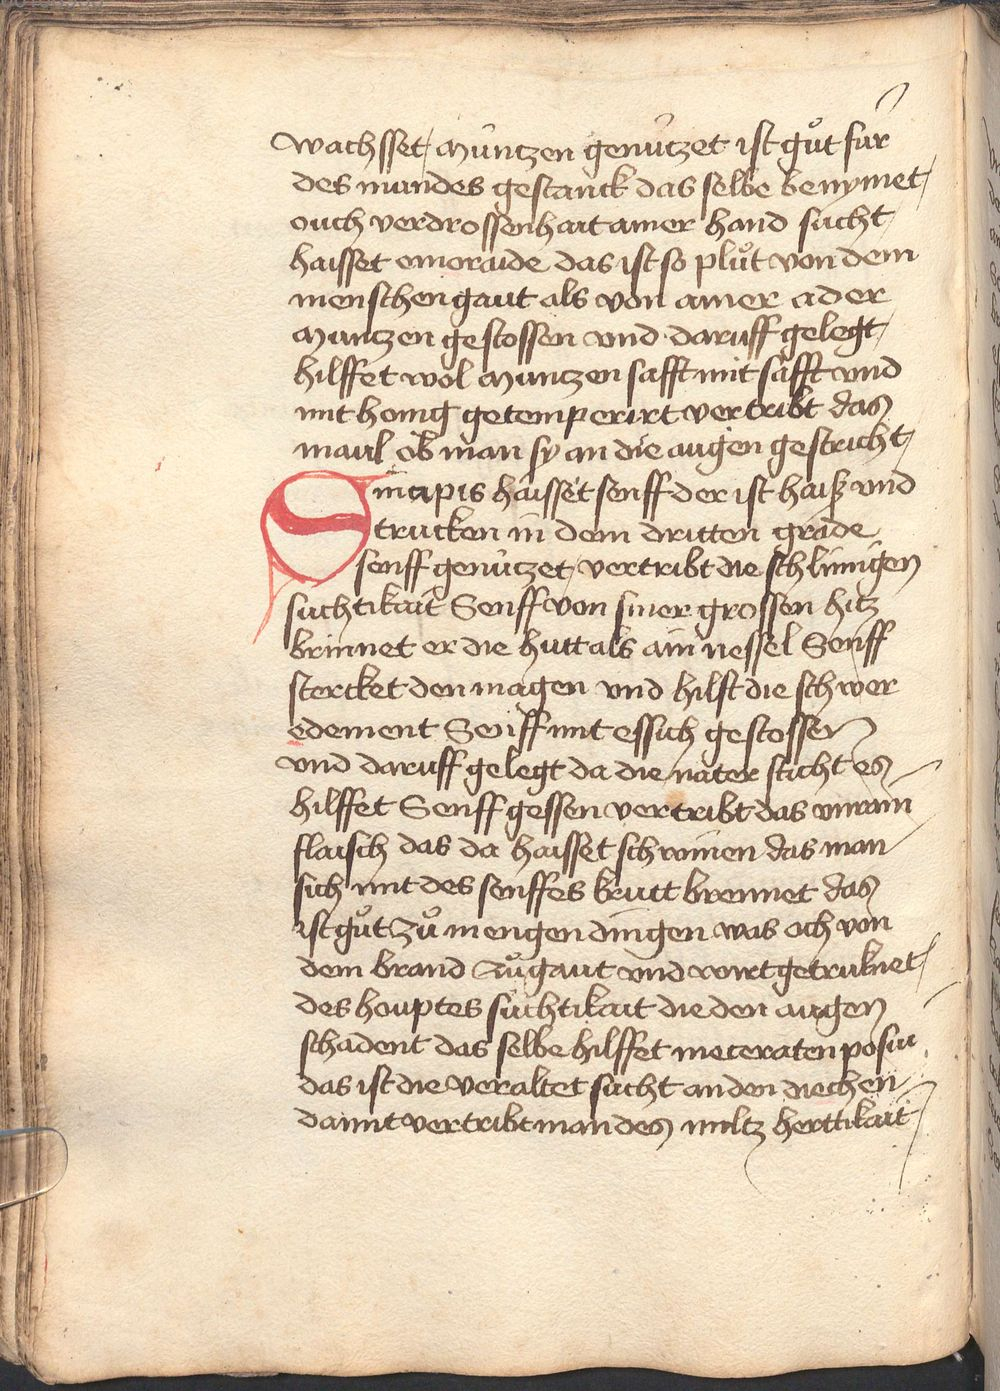 wachsset / müntzen genützet ist gůt für
des mundes gestanck das selbe benymet /
ouch verdrossenhait ainer hand sucht /
haisset emoraide das ist so plůt von dem
menschen gaut als von ainer ader
Muntzen gestossen vnd daruff gelegt /
hilffet wol Muntzen safft mit säfft vnd
mit honig getemperirt vertribt das
maul ob man sy an die augen gestricht /
Sinapis haisset senff der ist haiß vnd
trucken in dem dritten grade
senff genützet / vertribt die schlimigen
süchtikait Senff von siner grossen hitz
brinnet er die hutt als ain nessel Senff
stercket den magen vnd hilft die schwer
edement Senff mit essich gestossen
vnd daruff gelegt da die nater sticht es
hilffet Senff gessen vertribt das vnrain
flaisch das da haisset schwinen das man
sich mit des senffes krutt brennet das
ist gůt zů mengen dingen was och von
dem brand zůgaut vnd wirt getruknet /
des houptes süchtikait die den augen
schadent das selbe hilffet meceraten posui
das ist die veraltet sücht an den diechen
damit vertribt man des miltz herttikait